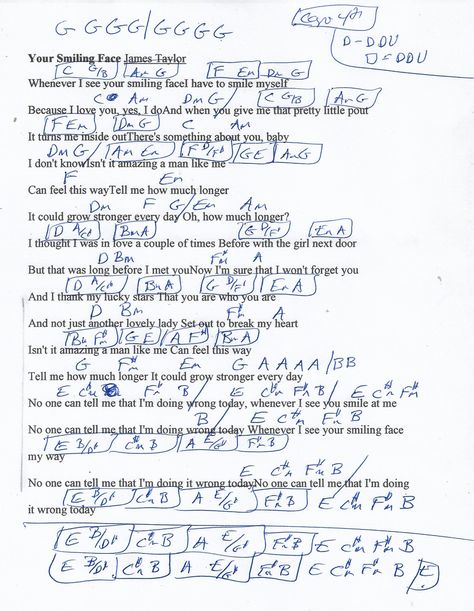 G GGGG/GGGG
Capo 4fr
D-DDU
D=DDU
Your Smiling Face James Taylor
C G/B Am G F Em Dm G
Whenever I see your smiling faceI have to smile myself
C Am Dm G / C G/B Am G
Because I love you, yes, I doAnd when you give me that pretty little pout
F Em Dm G C Am
It turns me inside outThere's something about you, baby
Dm G / Am Em F D/F# G E Am G
I don't knowIsn't it amazing a man like me
F Em
Can feel this wayTell me how much longer
Dm F G/Em Am
It could grow stronger every day Oh, how much longer?
D A/C# Bm A G D/F# Em A
I thought I was in love a couple of times Before with the girl next door
D Bm F#m A
But that was long before I met youNow I'm sure that I won't forget you
D A/C# Bm A G D/F# Em A
And I thank my lucky stars That you are who you are
D Bm F#m A
And not just another lovely lady Set out to break my heart
Bm F#m G E A F# Bm A
Isn't it amazing a man like me Can feel this way
G F#m Em G A A A A /BB
Tell me how much longer It could grow stronger every day
E C#m F#m B / E C#m F#m B / E C#m F#m
No one can tell me that I'm doing wrong today, whenever I see you smile at me
B / E C#m F#m B
No one can tell me that I'm doing wrong today Whenever I see your smiling face
E B/D# C#m B A E/G# F#m B
my way
E C#m F#m B /
No one can tell me that I'm doing it wrong todayNo one can tell me that I'm doing
E B/D# C#m B A E/G# F#m B E C#m F#m B
it wrong today
E B/D# C#m B A E/G# F#m B E C#m F#m B
E B/D# C#m B A E/G# F#m B E C#m F#m B / E